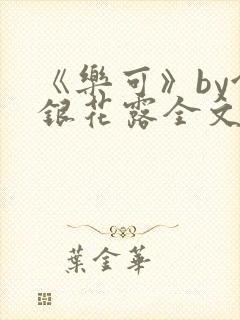 《樂可》by
銀花露全文
葉金華